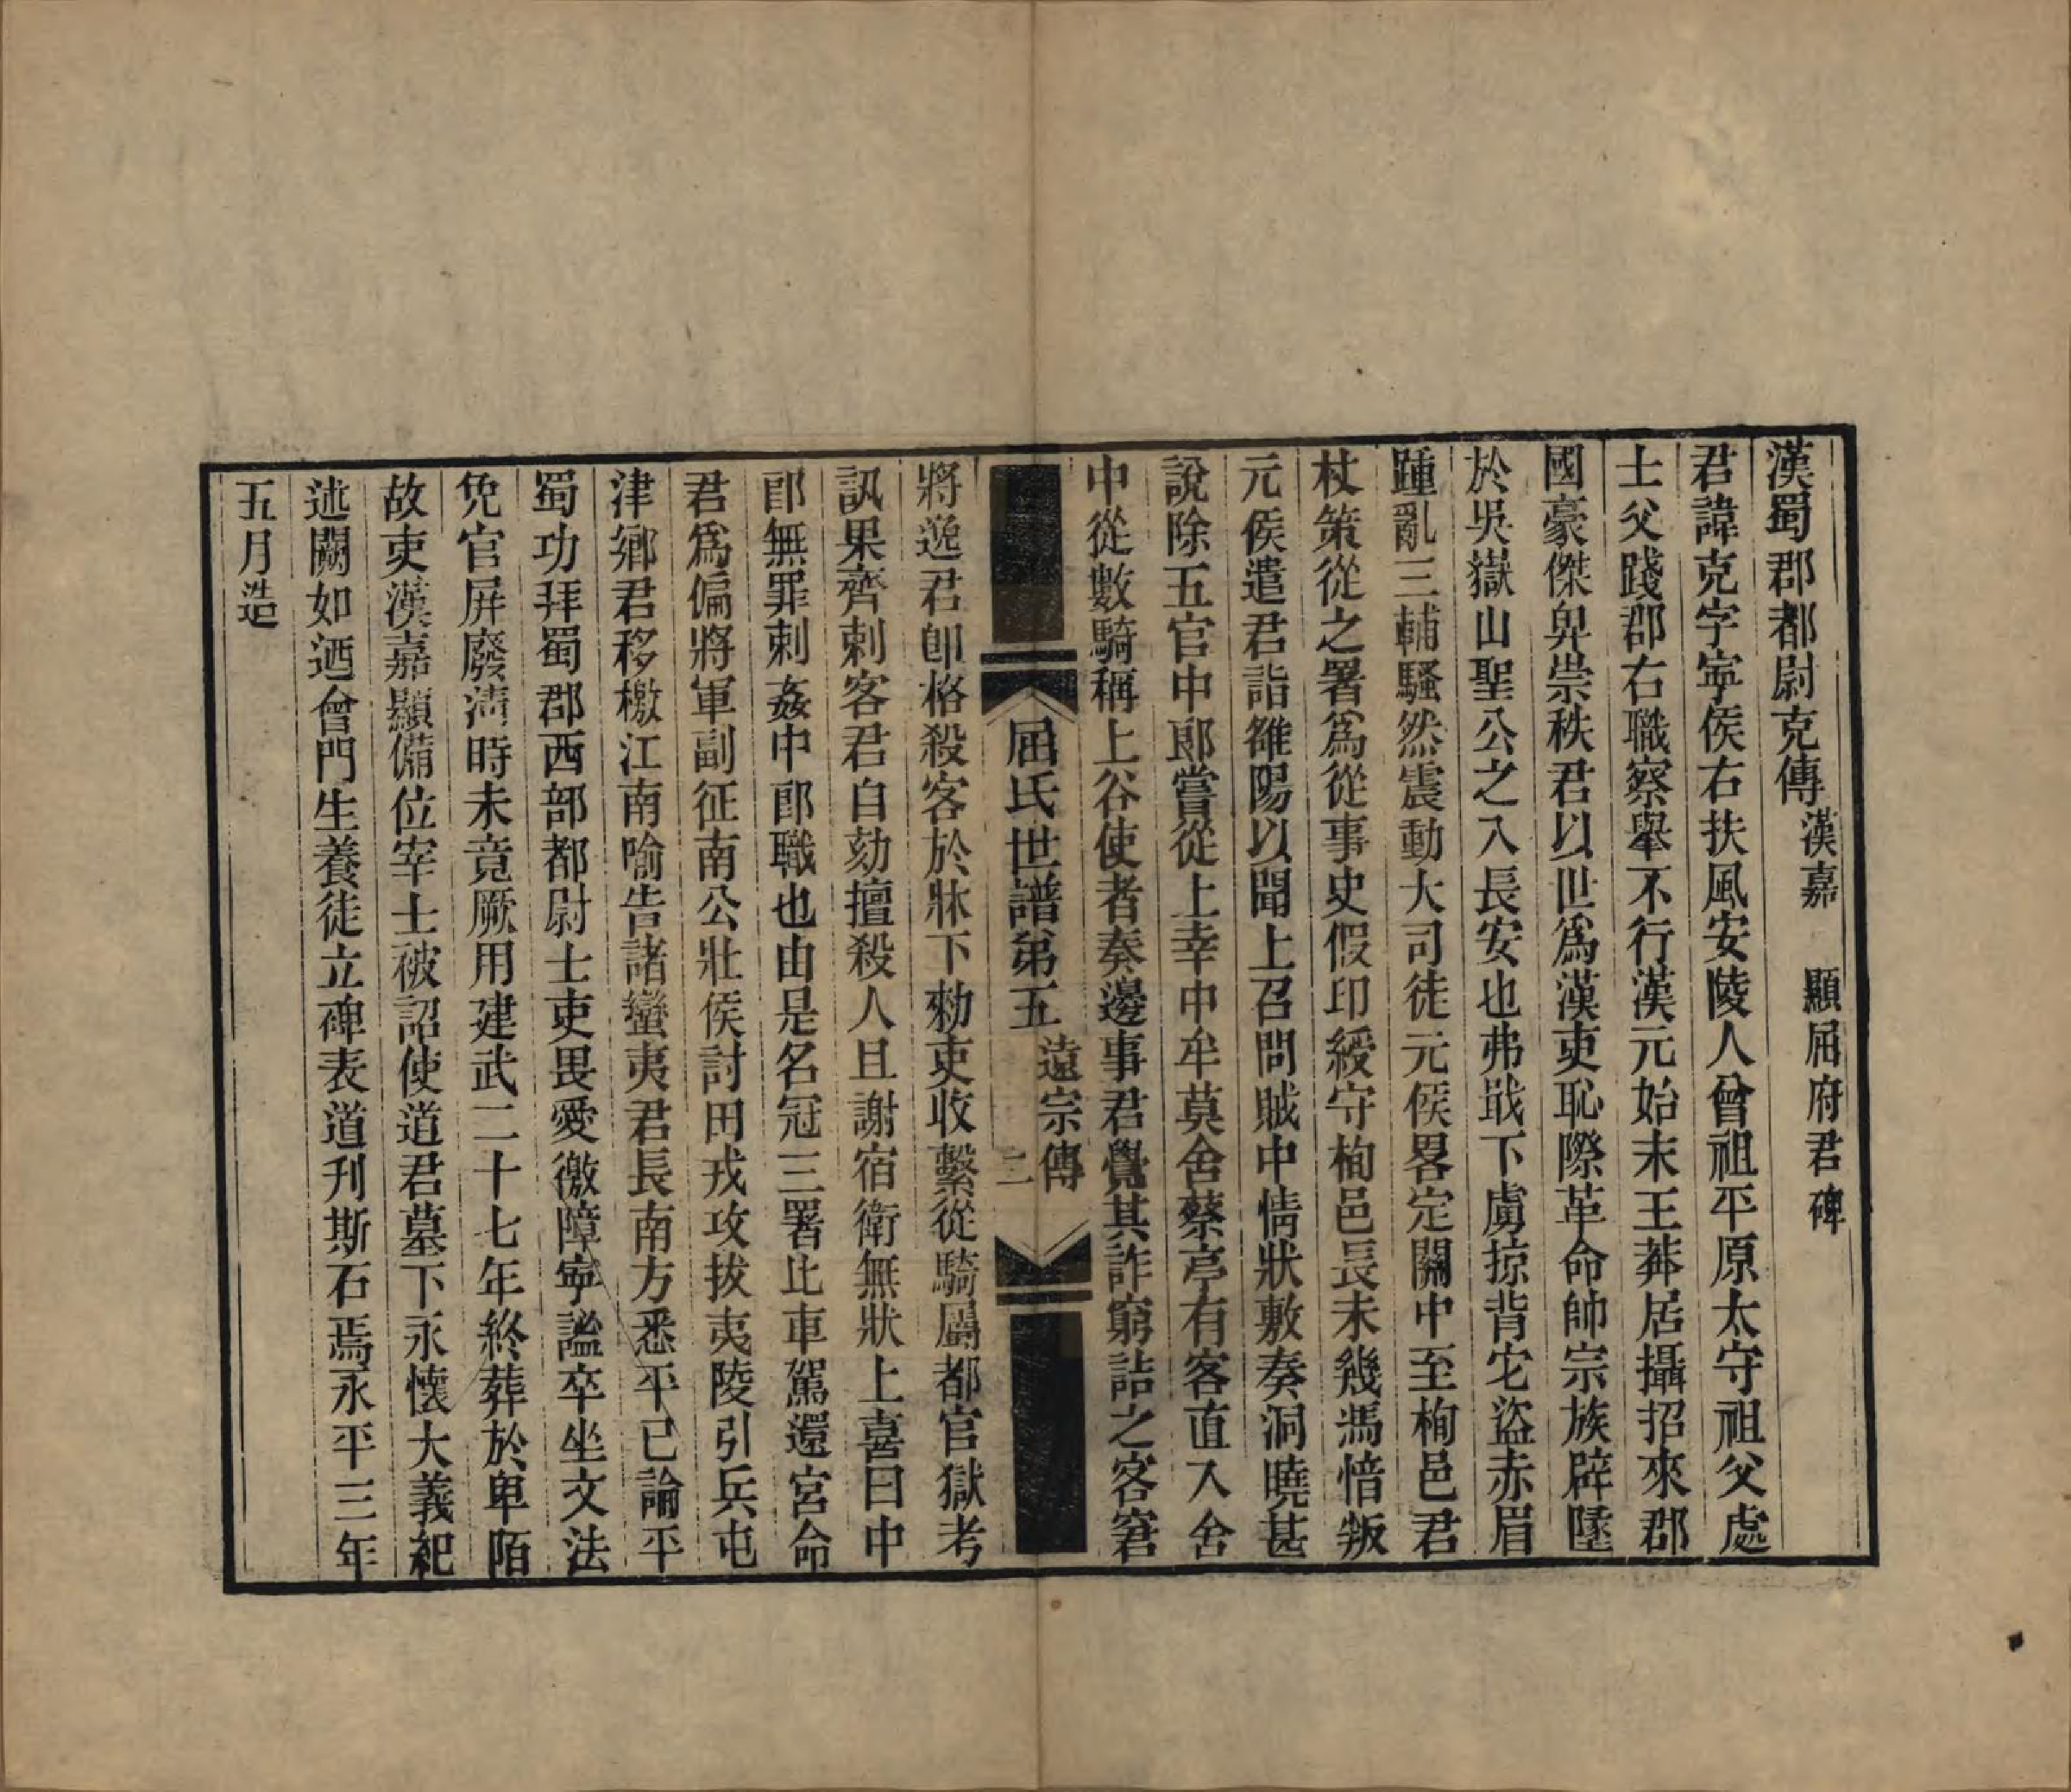 漢蜀郡都尉克傳漢嘉　顯屈府君碑
君諱克字寜侯右扶風安陵人曾祖平原太守祖父處
士父踐郡右職察舉不行漢元始末王莽居攝招來郡
國豪傑𢌿崇秩君以世爲漢吏恥際革命帥宗族辟墬
於吳嶽山聖公之入長安也弗戢下虜掠背宅盜赤眉
踵亂三輔騷然震動大司徒元侯畧定關中至栒邑君
杖策從之署爲從事史假印綬守栒邑長未幾馮愔叛
元侯遣君詣雒陽以聞上召問賊中情狀敷奏洞曉甚
說除五官中郎嘗從上幸中牟莫舍蔡亭有客直入舍
中從數騎稱上谷使者奏邊事君覺其詐窮詰之客窘
屈氏世譜第五遠宗傳　二
將逸君卽格殺客於牀下勑吏收繫從騎屬都官獄考
訊果齊刺客君自劾擅殺人且謝宿衛無狀上喜曰中
郎無罪刺姦中郎職也由是名冠三署比車駕還宮命
君爲偏將軍副征南公壯侯討田戎攻拔夷陵引兵屯
津鄉君移檄江南喻告諸蠻夷君長南方悉平已論平
蜀功拜蜀郡西部都尉士吏畏愛徼障寜謐卒坐文法
免官屏廢淸時未竟厥用建武二十七年終葬於卑陌
故吏漢嘉顯備位宰士被詔使道君墓下永懷大義紀
述闕如迺會門生養徒立碑表道刋斯石焉永平三年
五月造